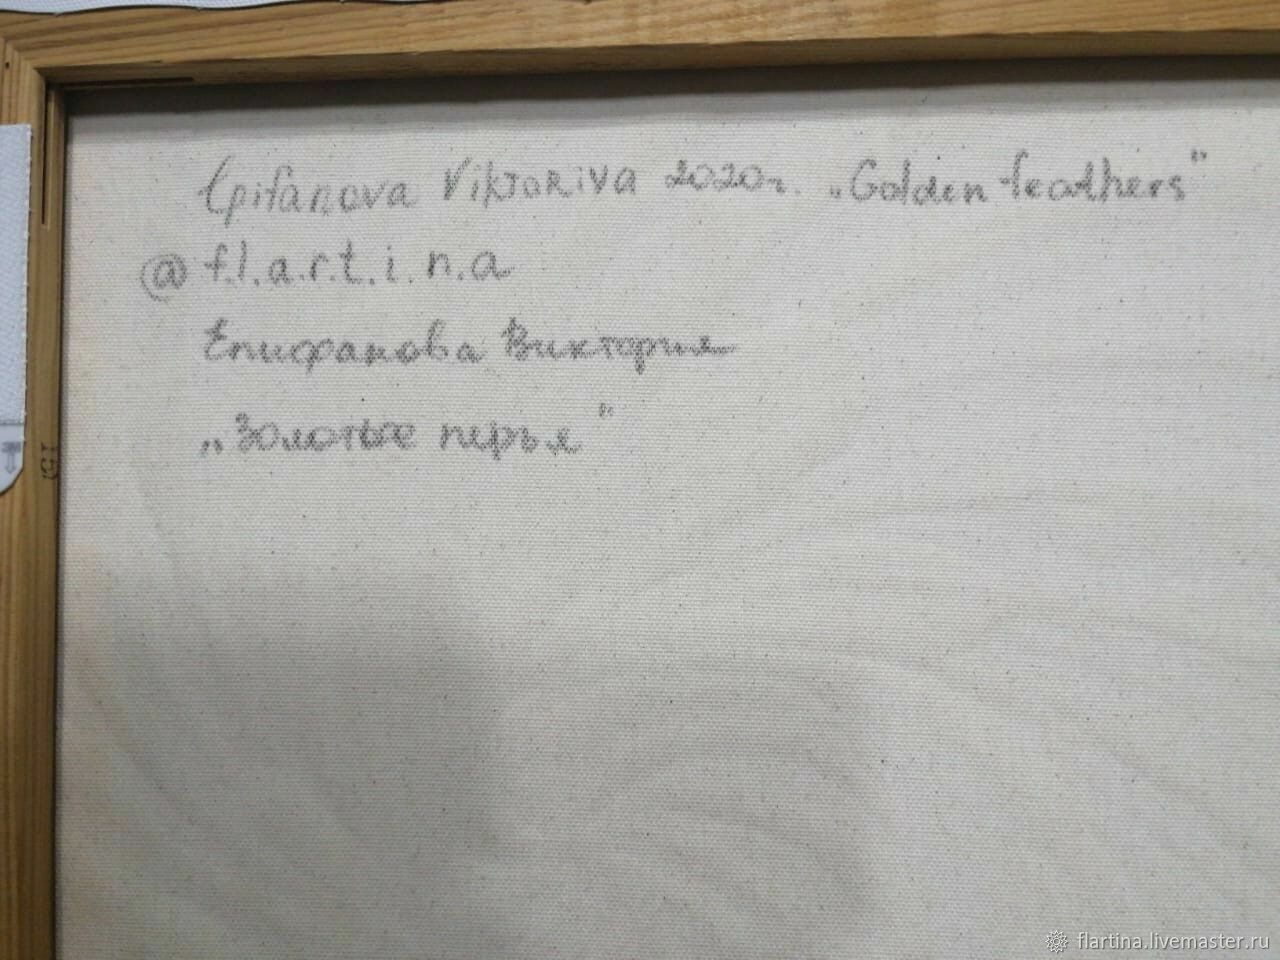 Epifanova Viktoriva 2020г. „Golden feathers"
@ f.l.a.r.t.i.n.a
Епифанова Виктория
„Золотые перья"
flartina.livemaster.ru